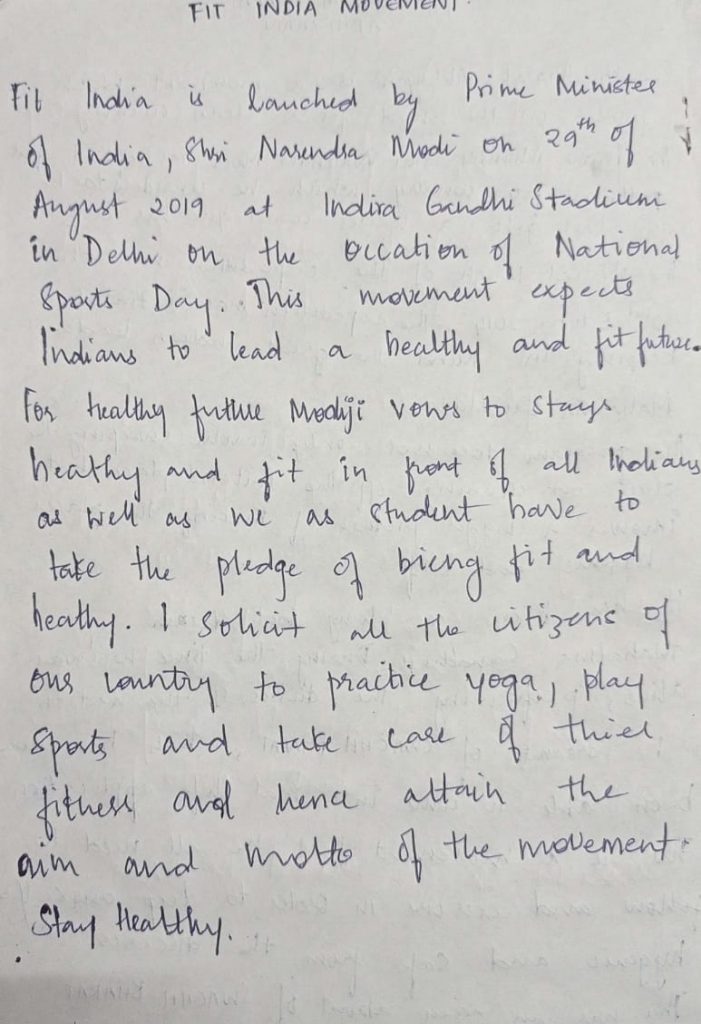 FIT INDIA MOVEMENT
Fit India is lauched by Prime Minister
of India, Shri Narendra Modi on 29th of
August 2019 at Indira Gandhi Stadium
in Delhi on the occation of National
Sports Day. This movement expects
Indians to lead a healthy and fit future.
For healthy future Modiji vows to stays
heathy and fit in front of all Indians
as well as we as student have to
take the pledge of bieng fit and
heathy. I solicit all the citizens of
our country to practice yoga, play
sports and take care of thier
fitness and hence attain the
aim and motto of the movement.
Stay Healthy.